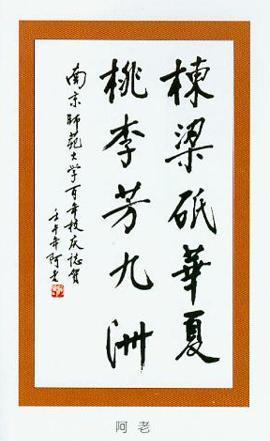 棟梁砥華夏
桃李芳九洲
南京師范大学百年校庆誌賀
壬午年阿老
阿老